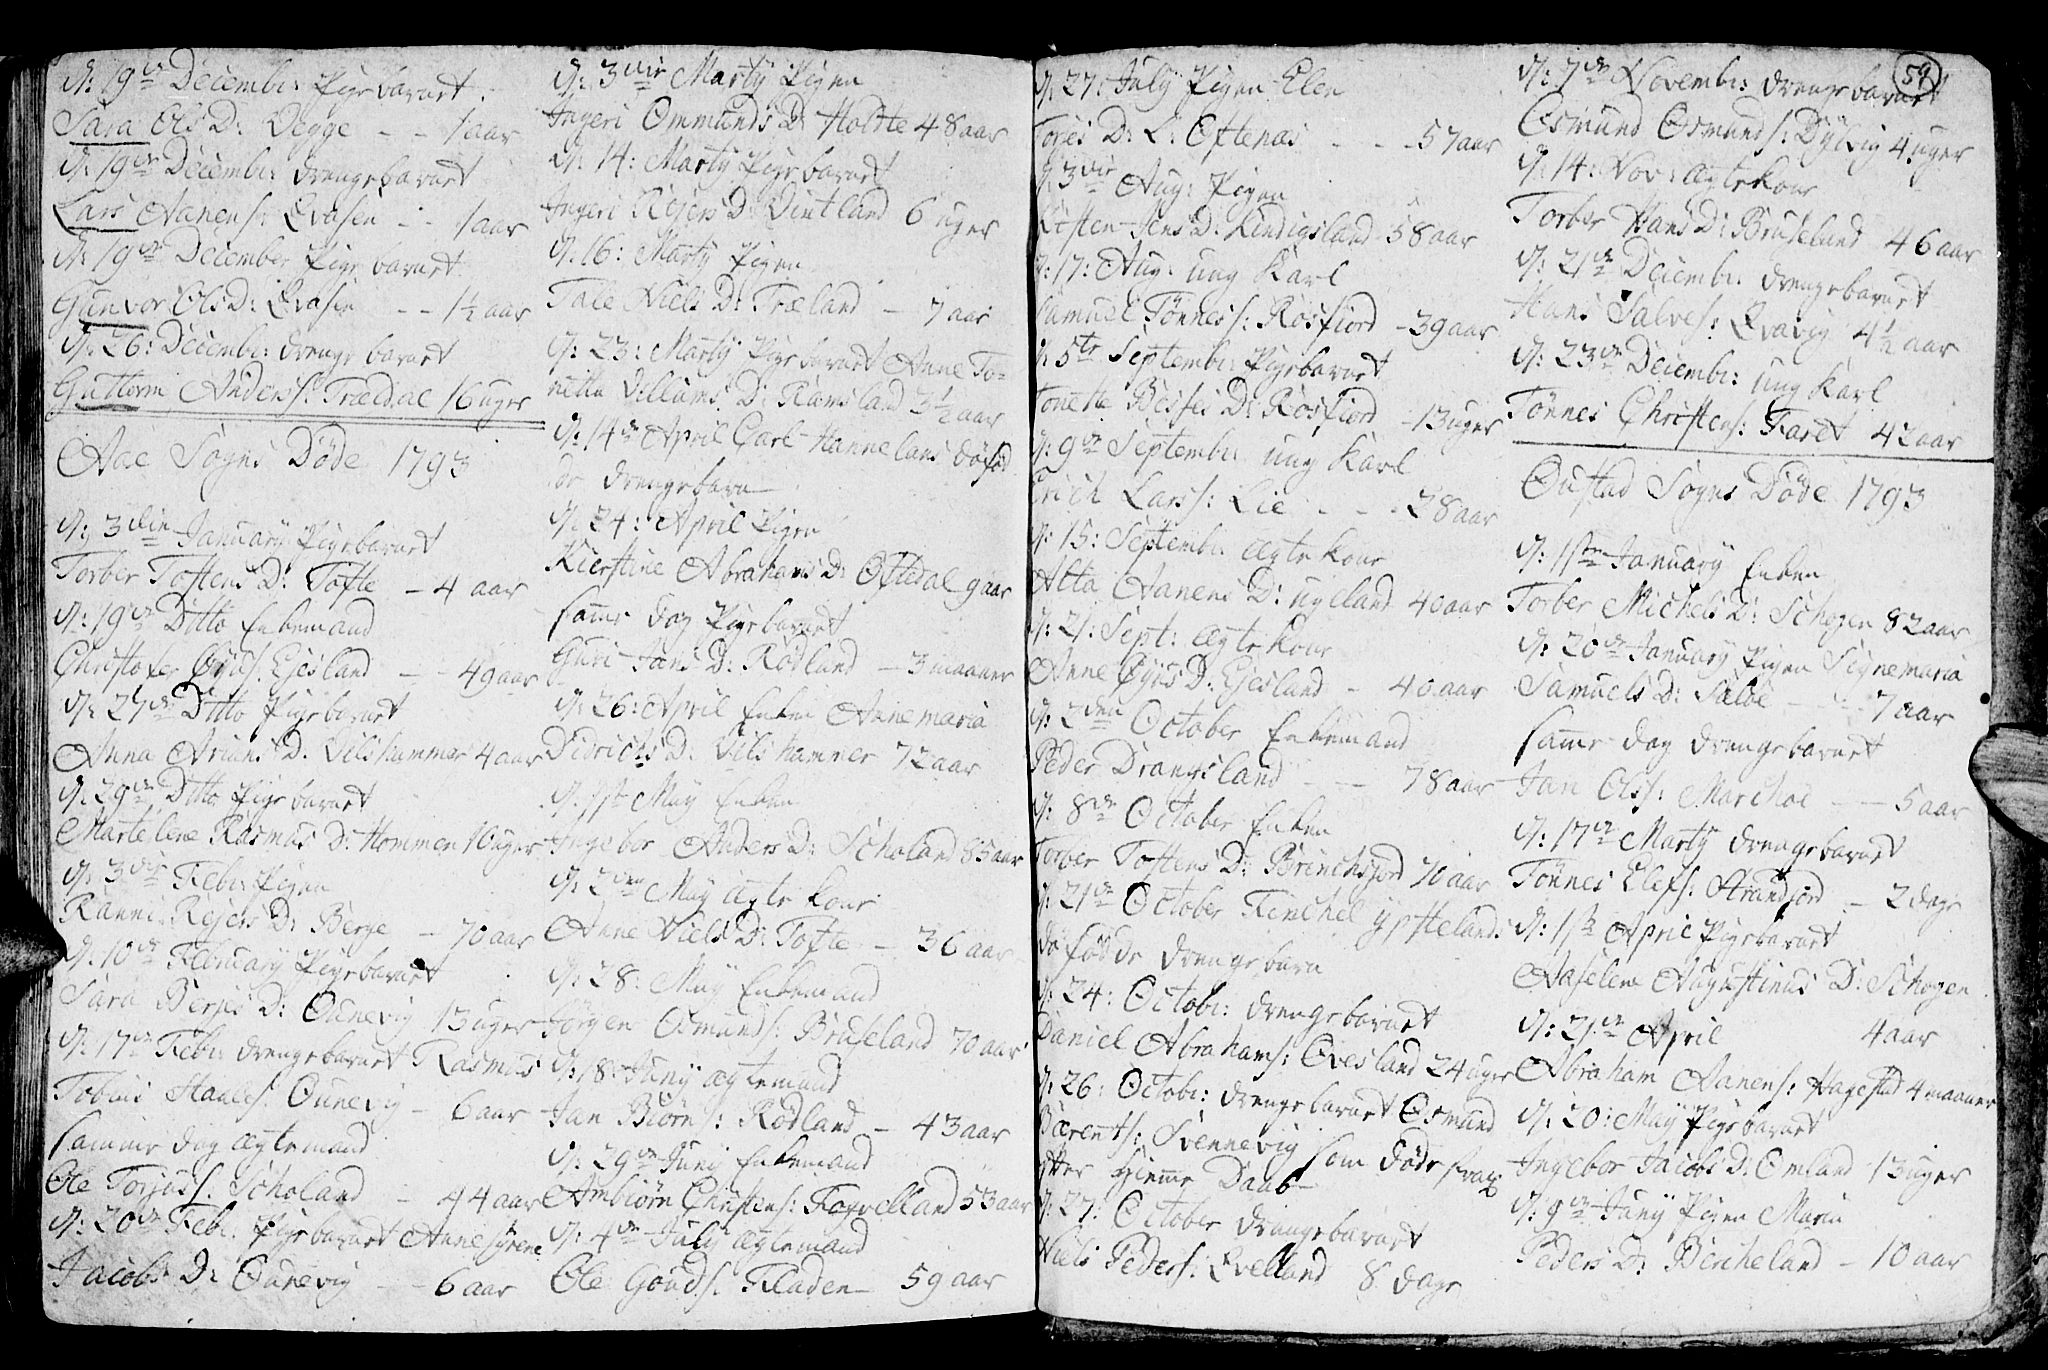 d: 19de Decembr: Pigebarnet
Sara Ols D: Vegge - - 1 aar
d: 19de Decembr: drengebarnet
Lars Aanens: Qvasen - - 1 aar
d: 19de December Pigebarnet
Gunvor Ols D: Qvasen - - 1½ aar
d: 26: Decembr: drengebarnet
Guttorm Anders S: Trældal 16 uger
Aae Sogns Døde 1793
d: 3die January Pigebarnet
Torber Tostens D: Tofte - 4 aar
d: 19de Ditto Enkemand
Christofer Øyus: Ejesland - - 49 aar
d: 27de Ditto Pigebarnet
Anna Arians D: Vilshammer 4 aar
d: 29de Ditto Pigebarnet
Martelene Rasmus D: Hommen 10 uger
d: 3die Febr: Pigen
Ranni Rejers D: Berge - 70 aar
d: 10de February Pigebarnet
Sara Berjes D: Ounevig 13 uger
d: 17de Febr: drengebarnet Rasmus
Tobias Staales: Ounevig - 6 aar
samme dag ægtemand
Ole Torjuss: Scholand - 44 aar
d: 20de Febr: Pigebarnet Anne Syrene
Jacobs D: Ounevig - - 6 aar
d: 3die Marty Pigen
Ingeri Ommunds D: Holtte 48 aar
d: 14: Marty Pigebarnet
Ingeri Rejers D: Vintland 6 uger
d: 16: Marty Pigen
Tale Niels D: Træland - 7 aar
d: 23: Marty Pigebarnet Anne To=
nette Villums D: Ramsland 3½ aar
d: 14de April Carl Hannelans døfød
de drengebarn
d: 24: April Pigen
Kierstine Abrahams D: Oftedal 9 aar
samme dag Pigebarnet
Guri Jans D: Rødland - 3 maaner
d: 26: April Enken Anne maria
Didrichs D: Vilshammer 72 aar
d: 1ste May Enken
Ingebor Anders D: Scholand 85 aar
d: 2den May ægte kone
Anne Niels D: Tofte - 36 aar
d: 28: May Enkemand
Jørgen Osmunds: Bruseland 70 aar
d: 18: Juny ægtemand
Jan Biørns: Rødland - 43 aar
d: 29de Juny Enkemand
Ambiørn Christens: Fogvelland 53 aar
d: 4de July ægtemand
Ole Gouds: Fladen - 59 aar
d: 27: July Pigen Elen
Torjes D: L: Oftenæs - - - 57 aar
d: 3die Aug: Pigen
Kisten Jens D: Lindigsland 58 aar
d: 17: Aug: ung Karl
Samuel Tønness: Rosfiord - 39 aar
d: 5te Septembr: Pigebarnet
Tonette Besses D: Rosfiord - 13 uger
d: 9de Septembr: ung Karl
Erich Larss: Lie - - - 28 aar
d: 15: Septembr: ægte kone
Alta Aanens D: ugeland 40 aar
d: 21: Sept: ægte kone
Anne Øyus D: Ejesland - 40 aar
d: 2den October Enkemand
Peder Drangsland - - 78 aar
d: 8de October Enken
Torber Tostens D: Brinchsjord 70 aar
d: 21de October Tenchel ystteland:
døfødde drengebarn
d: 24: Octobr: drengebarnet
Daniel Abrahams: Ovesland 24 uger
d: 26: Octobr: drengebarnet Osmund
Bærents: Svennevig som døde strax
efter Hiemme Daab
d: 27: October drengebarnet
Niels Peders: Qvelland 8 dage
59
d: 7de Novembr: drengebarnet
Osmund Osmunds: Dybvig 4 uger
d: 14: Nov: ægte kone
Torber Hans D: Bruseland 46 aar
d: 21de Decembr: drengebarnet
Hans Salves: Qvavig 4½ aar
d: 23de Decembr: ung Karl
Tønnes Christens: Faret 42 aar
Oustad Sogns Døde 1793
d: 11te January Enken
Torber Michels D: Schogen 82 aar
d: 20de January Pigen Signemaria
Samuels D: Salve - - 7 aar
samme dag drengebarnet
Jan Olss: Marchoe - - 5 aar
d: 17de Marty drengebarnet
Tønnes Elefs: Strandfiord - 2 dage
d: 1ste April Pigebarnet
Aaselene Augustinus D: Schogen
4 aar
d: 21de April
Abraham Aanens: Hagestad 4 maaner
d: 20: May Pigebarnet
Ingebor Jacobs D: Omland 13 uger
d: 9de Juny Pigen Maria
Peders D: Bircheland - 10 aar